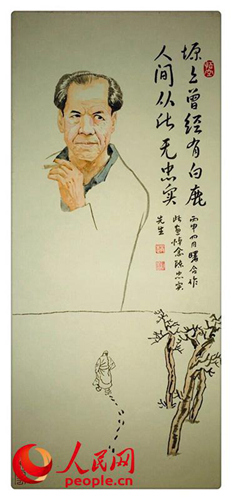 塬上曾经有白鹿
人间从此无忠实
丙申四月曙合作
此画悼念陈忠实
先生
人民网
people.cn